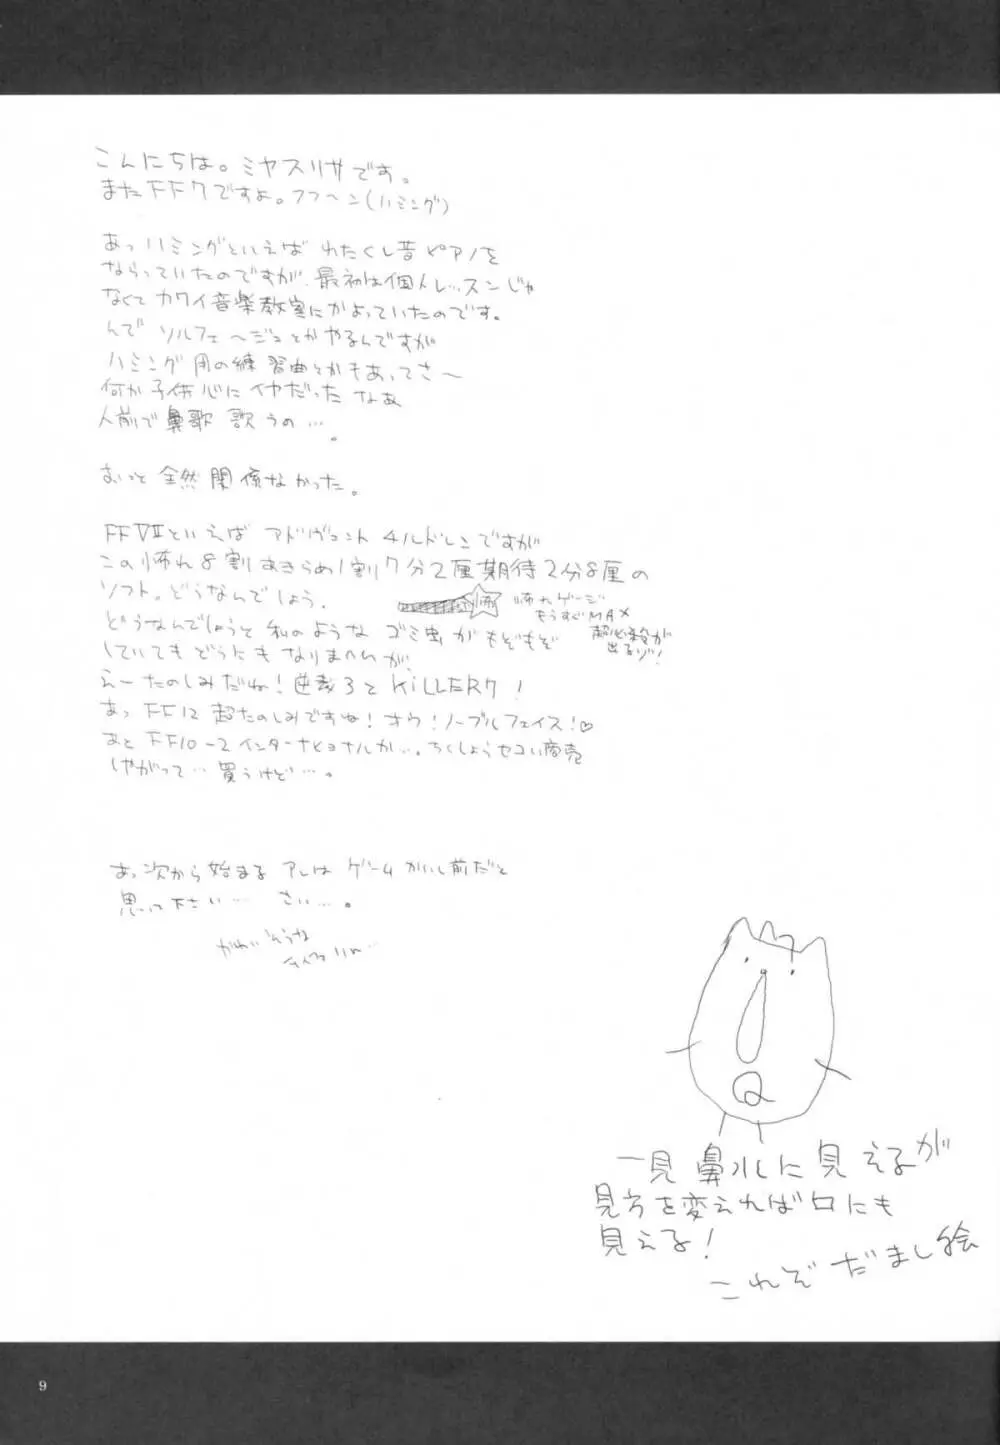 こんにちは。ミヤスリサです。
またFF7ですよ。フフ〜ン(ハミング)
あっハミングといえば わたくし昔ピアノを
ならっていたのですが、最初は個人レッスンじゃ
なくて カワイ音楽教室にかよっていたのです。
んで ソルフェ〜ジュとかやるんですが
ハミング用の練習曲とかもあってさ〜
何か子供心にイヤだった なぁ
人前で鼻歌 歌うの…。
おっと 全然関係なかった。
FFⅦといえば アドヴェント チルドレンですが
この怖れ8割あきらめ1割7分2厘期待2分8厘の
ソフト。どうなんでしょう。
怖
怖れゲージ
もうすぐMAX
超必殺が
出るゾ!
どうなんでしょうと 私のような ゴミ虫が もぞもぞ
していてもどうにも なりませんが、
えーたのしみだね!逆裁3とKiLLER7!
あっ FF12 超たのしみですね!オウ!ノーブルフェイス!♡
あと FF10-2インターナショナルか…。ちくしょうセコい商売
しやがって…買うけど…。
あ、次から始まる アレは ゲーム かいし前だと
思って下さい… さい…。
かわいそうな
一見鼻水に見えるが
見方を変えれば口にも
見える!
これぞ だまし絵
9